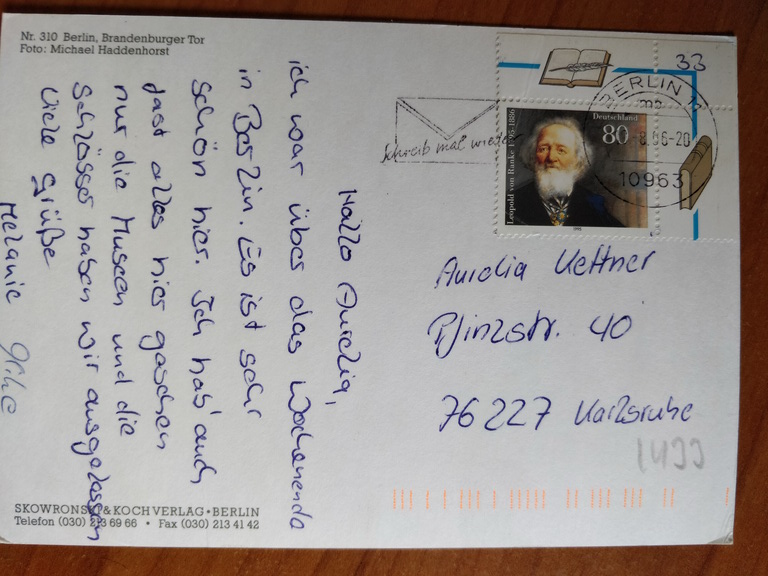 Nr. 310 Berlin, Brandenburger Tor
Foto: Michael Haddenhorst
Hallo Aurelia,
ich war über das Wochenende
in Berlin. Es ist sehr
schön hier. Ich hab' auch
fast alles hier gesehen
nur die Museen und die
Schlösser haben wir ausgelassen
Viele Grüße
Melanie
SKOWRONSKI & KOCH VERLAG • BERLIN
Telefon (030) 213 69 66 • Fax (030) 213 41 42
33
BERLIN 11
Schreib mal wieder
Deutschland
80
Leopold von Ranke 1795-1886
8.96-20
10963
Aurelia Kettner
Pfinzstr. 40
76227 Karlsruhe
1499